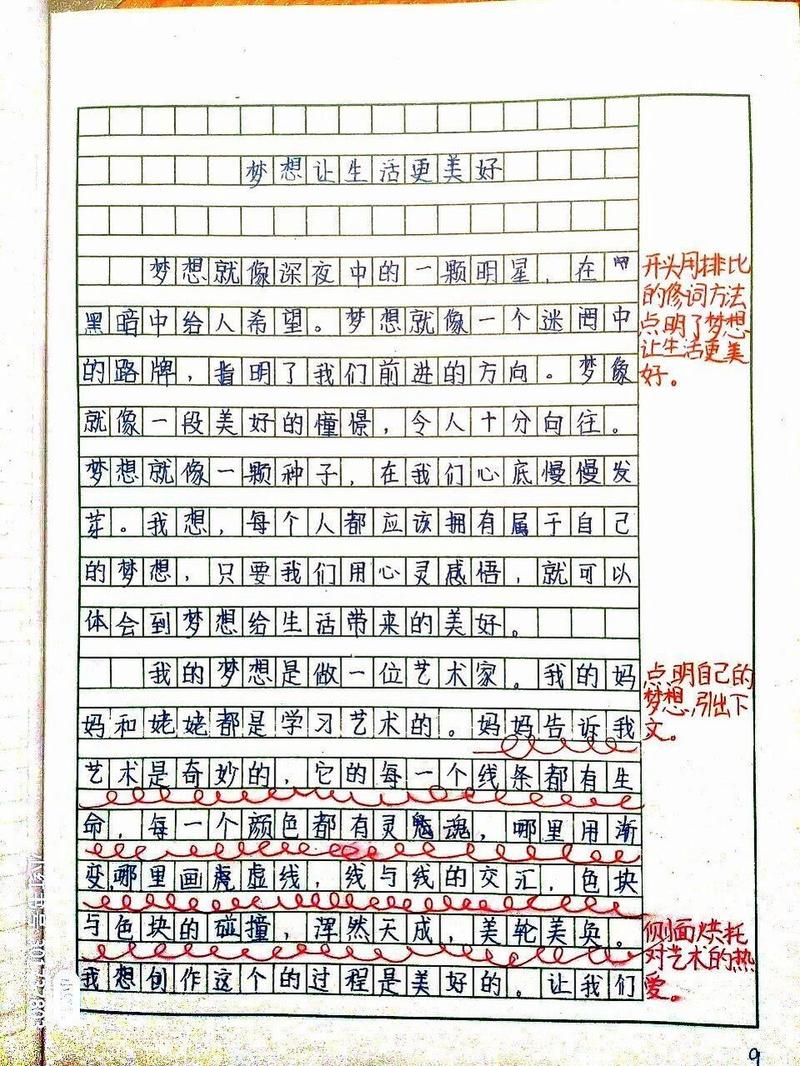 梦想让生活更美好
梦想就像深夜中的一颗明星，在
黑暗中给人希望。梦想就像一个迷茫中
的路牌，指明了我们前进的方向。梦像
就像一段美好的憧憬，令人十分向往。
梦想就像一颗种子，在我们心底慢慢发
芽。我想，每个人都应该拥有属于自己
的梦想，只要我们用心灵感悟，就可以
体会到梦想给生活带来的美好。
我的梦想是做一位艺术家。我的妈
妈和姥姥都是学习艺术的。妈妈告诉我
艺术是奇妙的，它的每一个线条都有生
命，每一个颜色都有灵魂，哪里用渐
变,哪里画虚线，线与线的交汇，色块
与色块的碰撞，浑然天成，美轮美奂。
我想创作这个的过程是美好的。让我们
开头用排比
的修词方法
点明了梦想
让生活更美
好。
点明自己的
梦想,引出下
文。
侧面烘托
对艺术的热
爱。
9